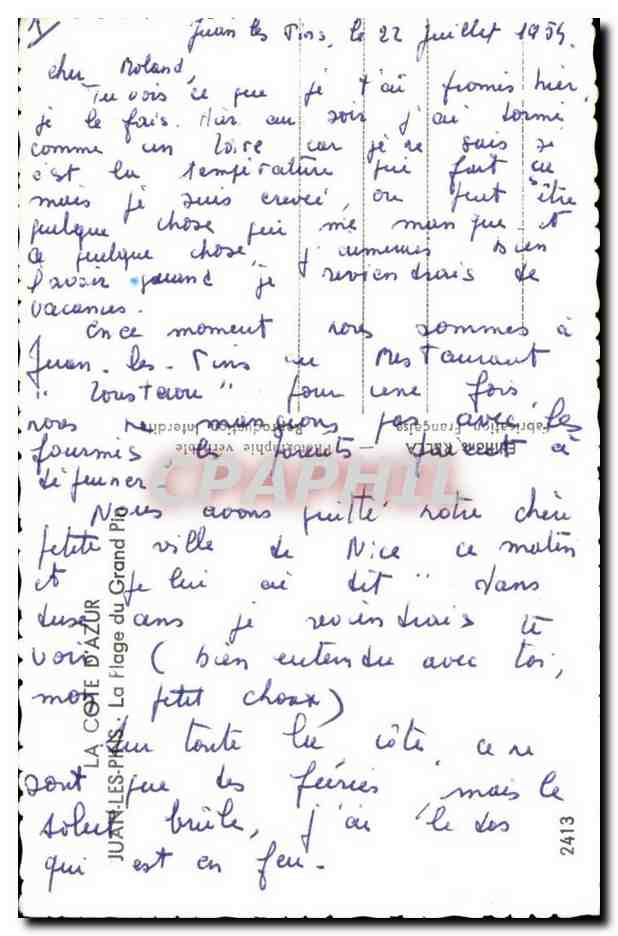 1)
Juan les Pins, le 22 juillet 1954.
Cher Roland,
Tu vois ce que je t'ai promis hier,
je le fais. Hier au soir j'ai dormi
comme un loire car je ne sais si
c'est la température qui fait ça
mais je suis crevée, ou peut être
quelque chose qui me manque et
ce quelque chose, j'aimerais bien
l'avoir quand je reviendrais de
vacances.
En ce moment nous sommes à
Juan-les-Pins au Restaurant
" Loustaou " pour une fois
nous ne mangions pas avec les
fourmis, les parents
déjeuner.
Nous avons quitté notre chère
petite ville de Nice ce matin
et je lui ai dit " dans
deux ans je reviendrais te
voir (bien entendu avec toi,
mon petit choux)
Sur toute la côte, ce ne
sont que des féeries mais le
soleil brûle, j'ai le dos
qui est en feu.
LA COTE D'AZUR
JUAN-LES-PINS - La Plage du Grand Pin
2413
Photographie véritable
Fabrication Française - Reproduction Interdite
CPAPHIL